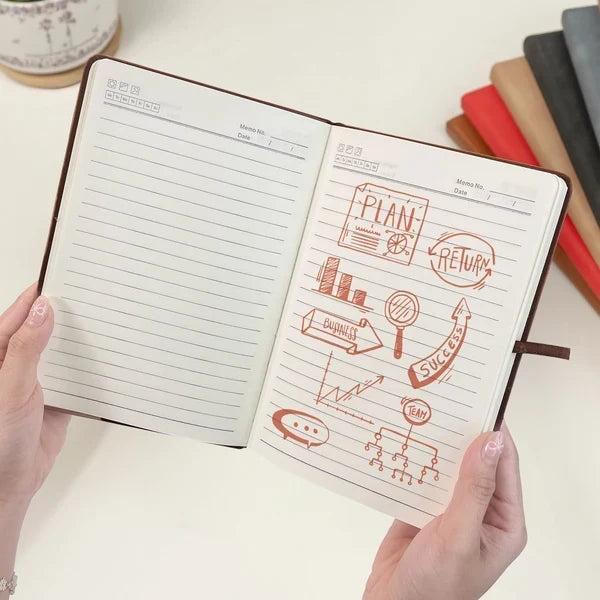 Memo No.
Date / /
Memo No.
Date / /
PLAN
RETURN
BUSINESS
SUCCESS
TEAM